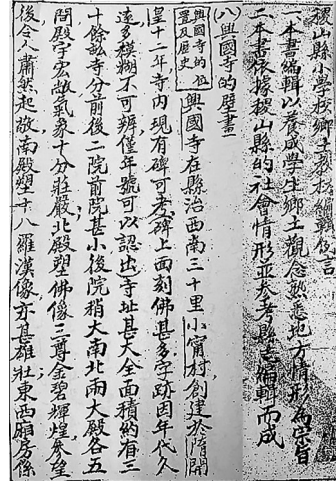 稷山縣小學校鄉土教材編輯例言
一本書編輯以養成學生鄉土觀念熟悉地方情形為宗旨
二本書依據稷山縣的社會情形並參考縣志編輯而成
八興國寺的壁畫
興國寺的位
置及歷史
興國寺在縣治西南三十里小甯村創建於隋開
皇十二年寺內現有碑可考碑上面刻佛甚多字跡因年代久
遠多模糊不可辨僅年號可以認出寺址甚大全面積約有三
十餘畝寺分前後二院前院甚小後院稍大南北兩大殿各五
間殿宇宏敞氣象十分莊嚴北殿塑佛像三尊金碧輝煌參望
後令人肅然起敬南殿塑十八羅漢像亦甚雄壯東西廂房係